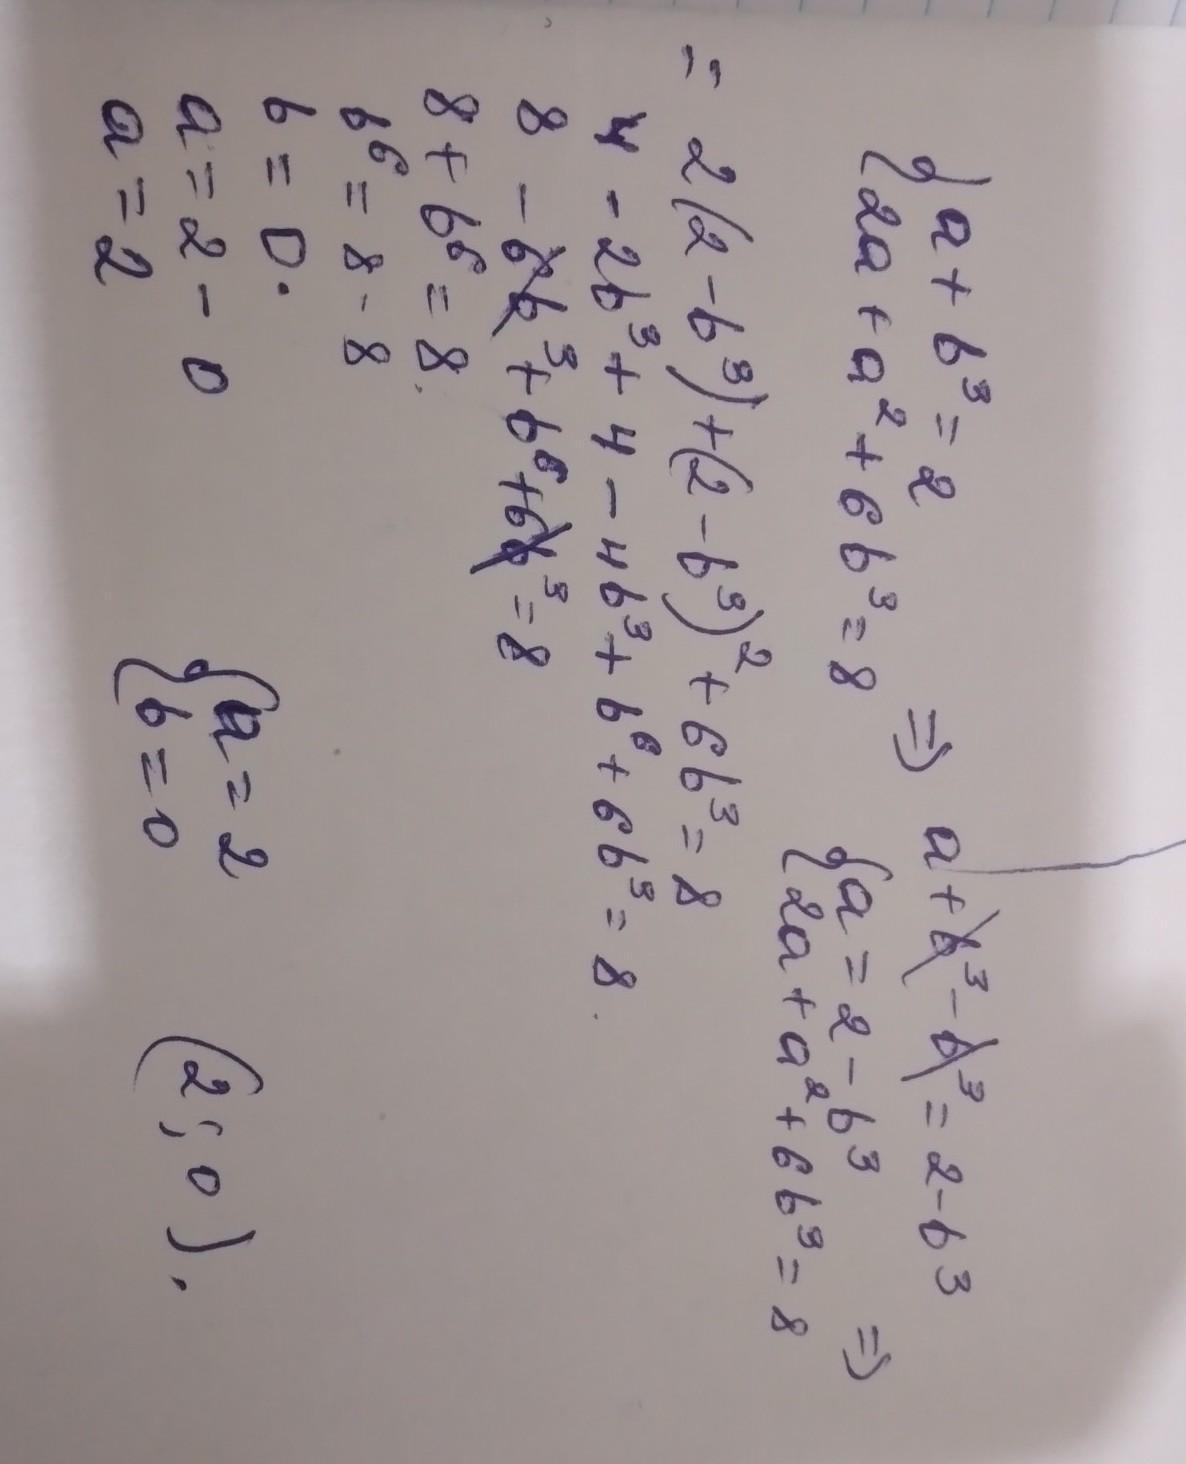 {a + b³ = 2
{2a + a² + 6b³ = 8 ⇒ a + b³ - b³ = 2 - b³
{a = 2 - b³
{2a + a² + 6b³ = 8 ⇒
= 2(2 - b³) + (2 - b³)² + 6b³ = 8
4 - 2b³ + 4 - 4b³ + b⁶ + 6b³ = 8.
8 - 6b³ + b⁶ + 6b³ = 8
8 + b⁶ = 8.
b⁶ = 8 - 8
b = 0.
a = 2 - 0
a = 2
{a = 2
{b = 0
(2; 0).